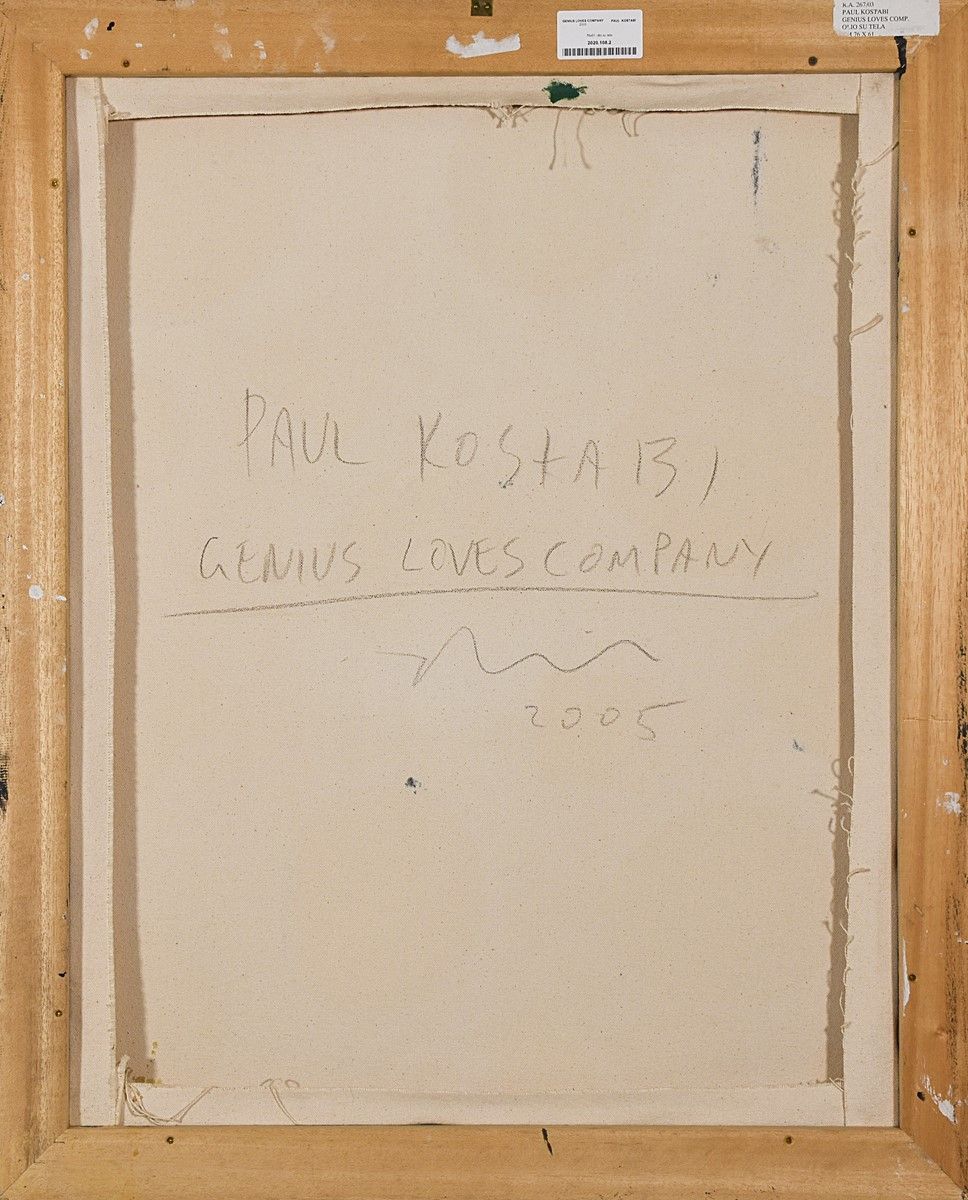 GENIUS LOVES COMPANY PAUL KOSTABI
2005
2020.108.2
K.A. 267/03
PAUL KOSTABI
GENIUS LOVES COMP.
SU TELA
76 X 61
PAUL KOSTABI
GENIUS LOVES COMPANY
2005